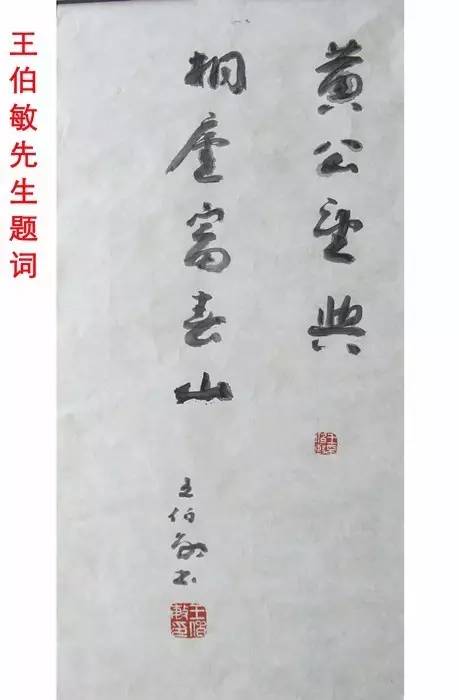 王伯敏先生题词
黄公望與
桐廬富春山
王伯敏书
王伯敏印